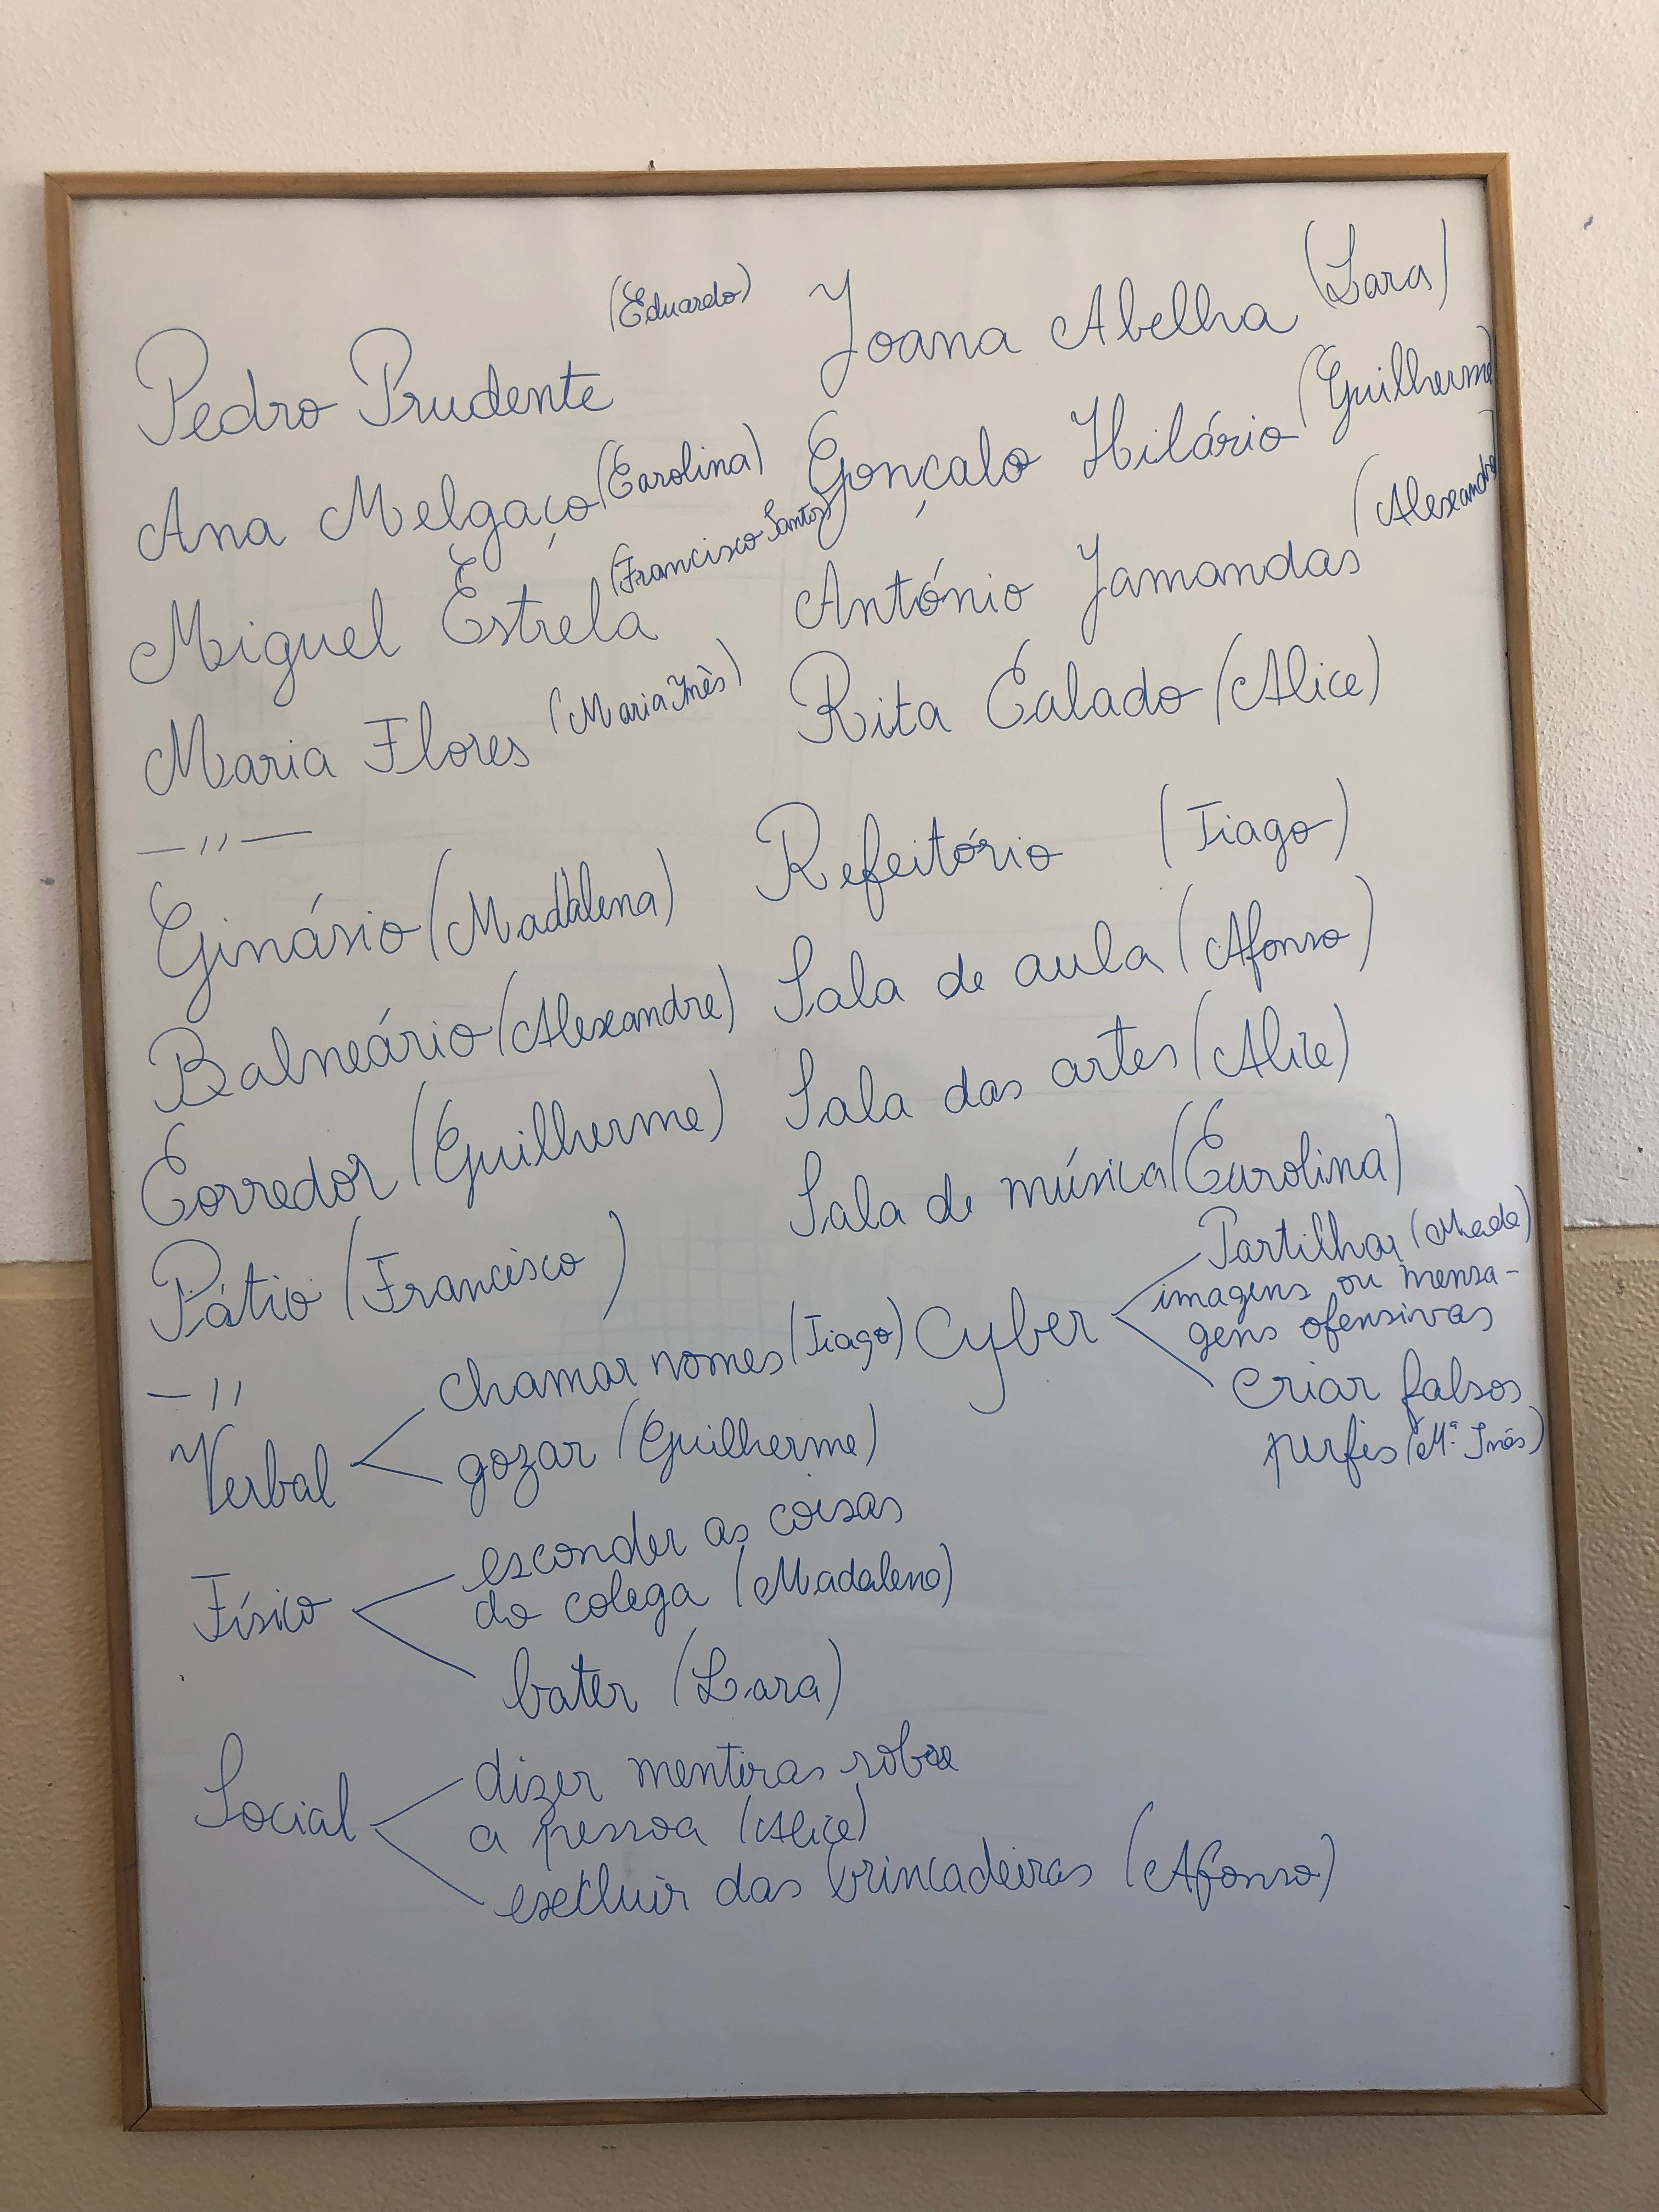 Pedro Prudente (Eduardo)
Joana Abelha (Lara)
Ana Melgaço (Carolina)
Gonçalo Hilário (Guilherme)
Miguel Estrela (Francisco Santos)
António Jamandas (Alexandre)
Maria Flores (Maria Inês)
Rita Calado (Alice)
— ,, —
Ginásio (Madalena)
Refeitório (Tiago)
Balneário (Alexandre)
Sala de aula (Afonso)
Corredor (Guilherme)
Sala das artes (Alice)
Pátio (Francisco)
Sala de música (Carolina)
— ,,
Verbal
chamar nomes (Tiago)
gozar (Guilherme)
Cyber
Partilhar (Mada)
imagens ou mensa-
gens ofensivas
criar falsos
perfis (Mª Inês)
Físico
esconder as coisas
do colega (Madalena)
bater (Lara)
Social
dizer mentiras sobre
a pessoa (Alice)
excluir das brincadeiras (Afonso)